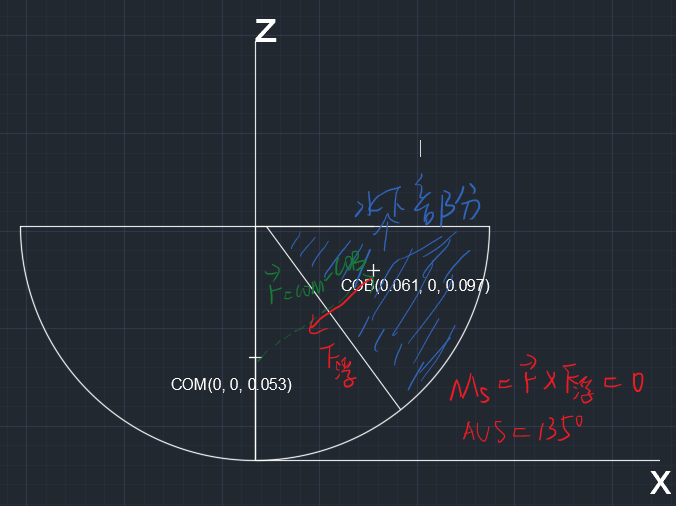 Z
水下部分
r=COM-COB
COB(0.061, 0, 0.097)
COM(0, 0, 0.053)
F浮
Ms = r × F浮 = 0
AVS = 135°
X